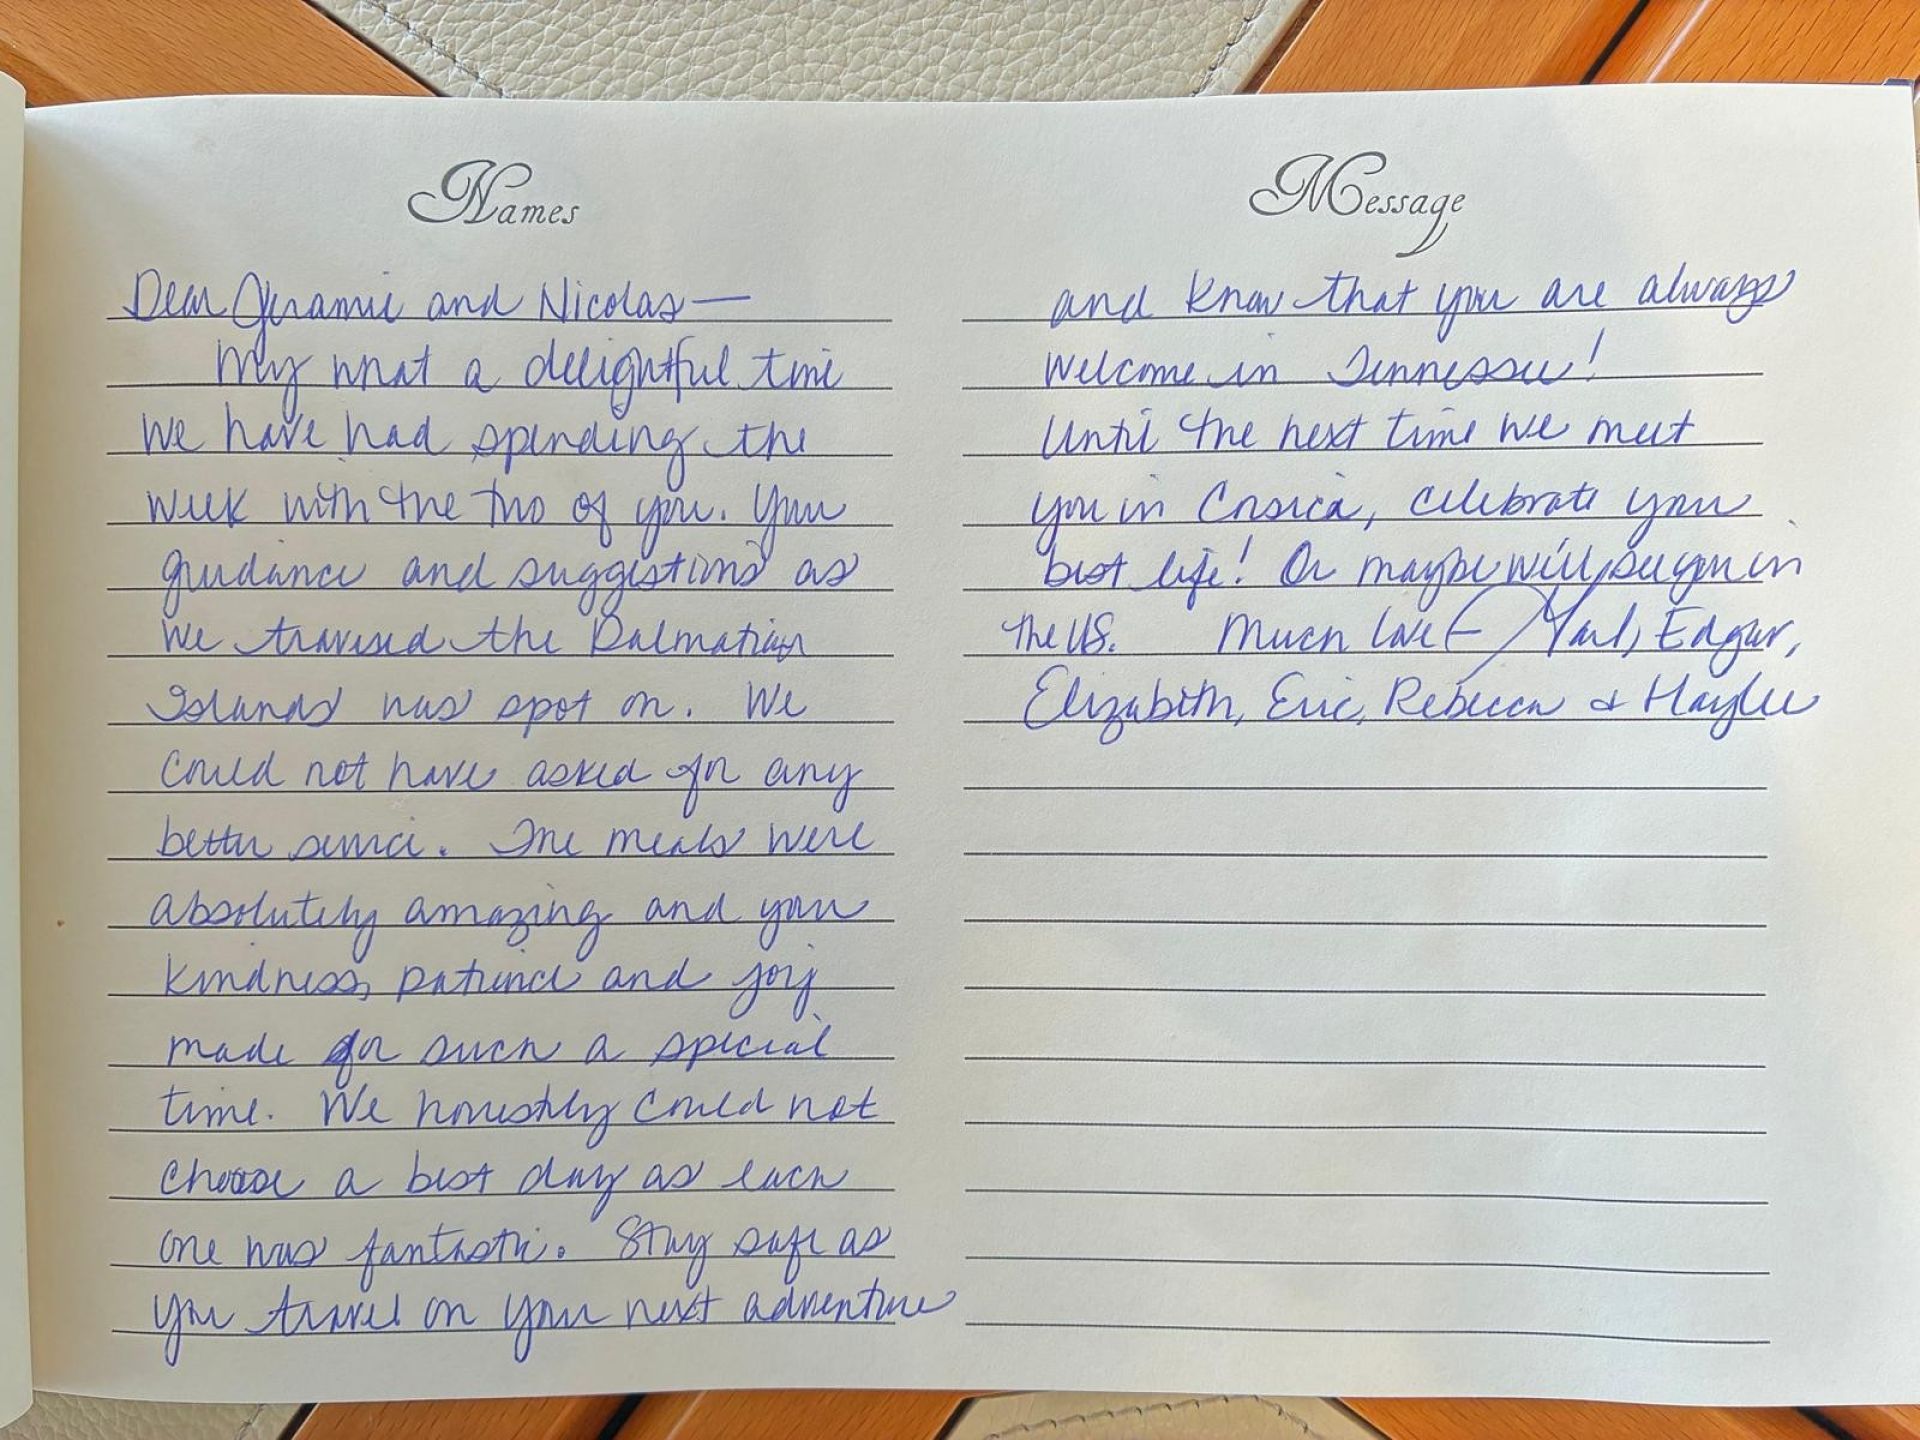 Names
Dear Jeramie and Nicolas —
My what a delightful time
we have had spending the
week with the two of you. Your
guidance and suggestions as
we traversed the Dalmatian
Islands was spot on. We
could not have asked for any
better service. The meals were
absolutely amazing and your
kindness, patience and joy
made for such a special
time. We honestly could not
choose a best day as each
one was fantastic. Stay safe as
you travel on your next adventure
Message
and know that you are always
welcome in Tennessee!
Until the next time we meet
you in Corsica, celebrate your
best life! Or maybe will see you in
the US. Much love – Edgar,
Elizabeth, Eric, Rebecca & Haylee